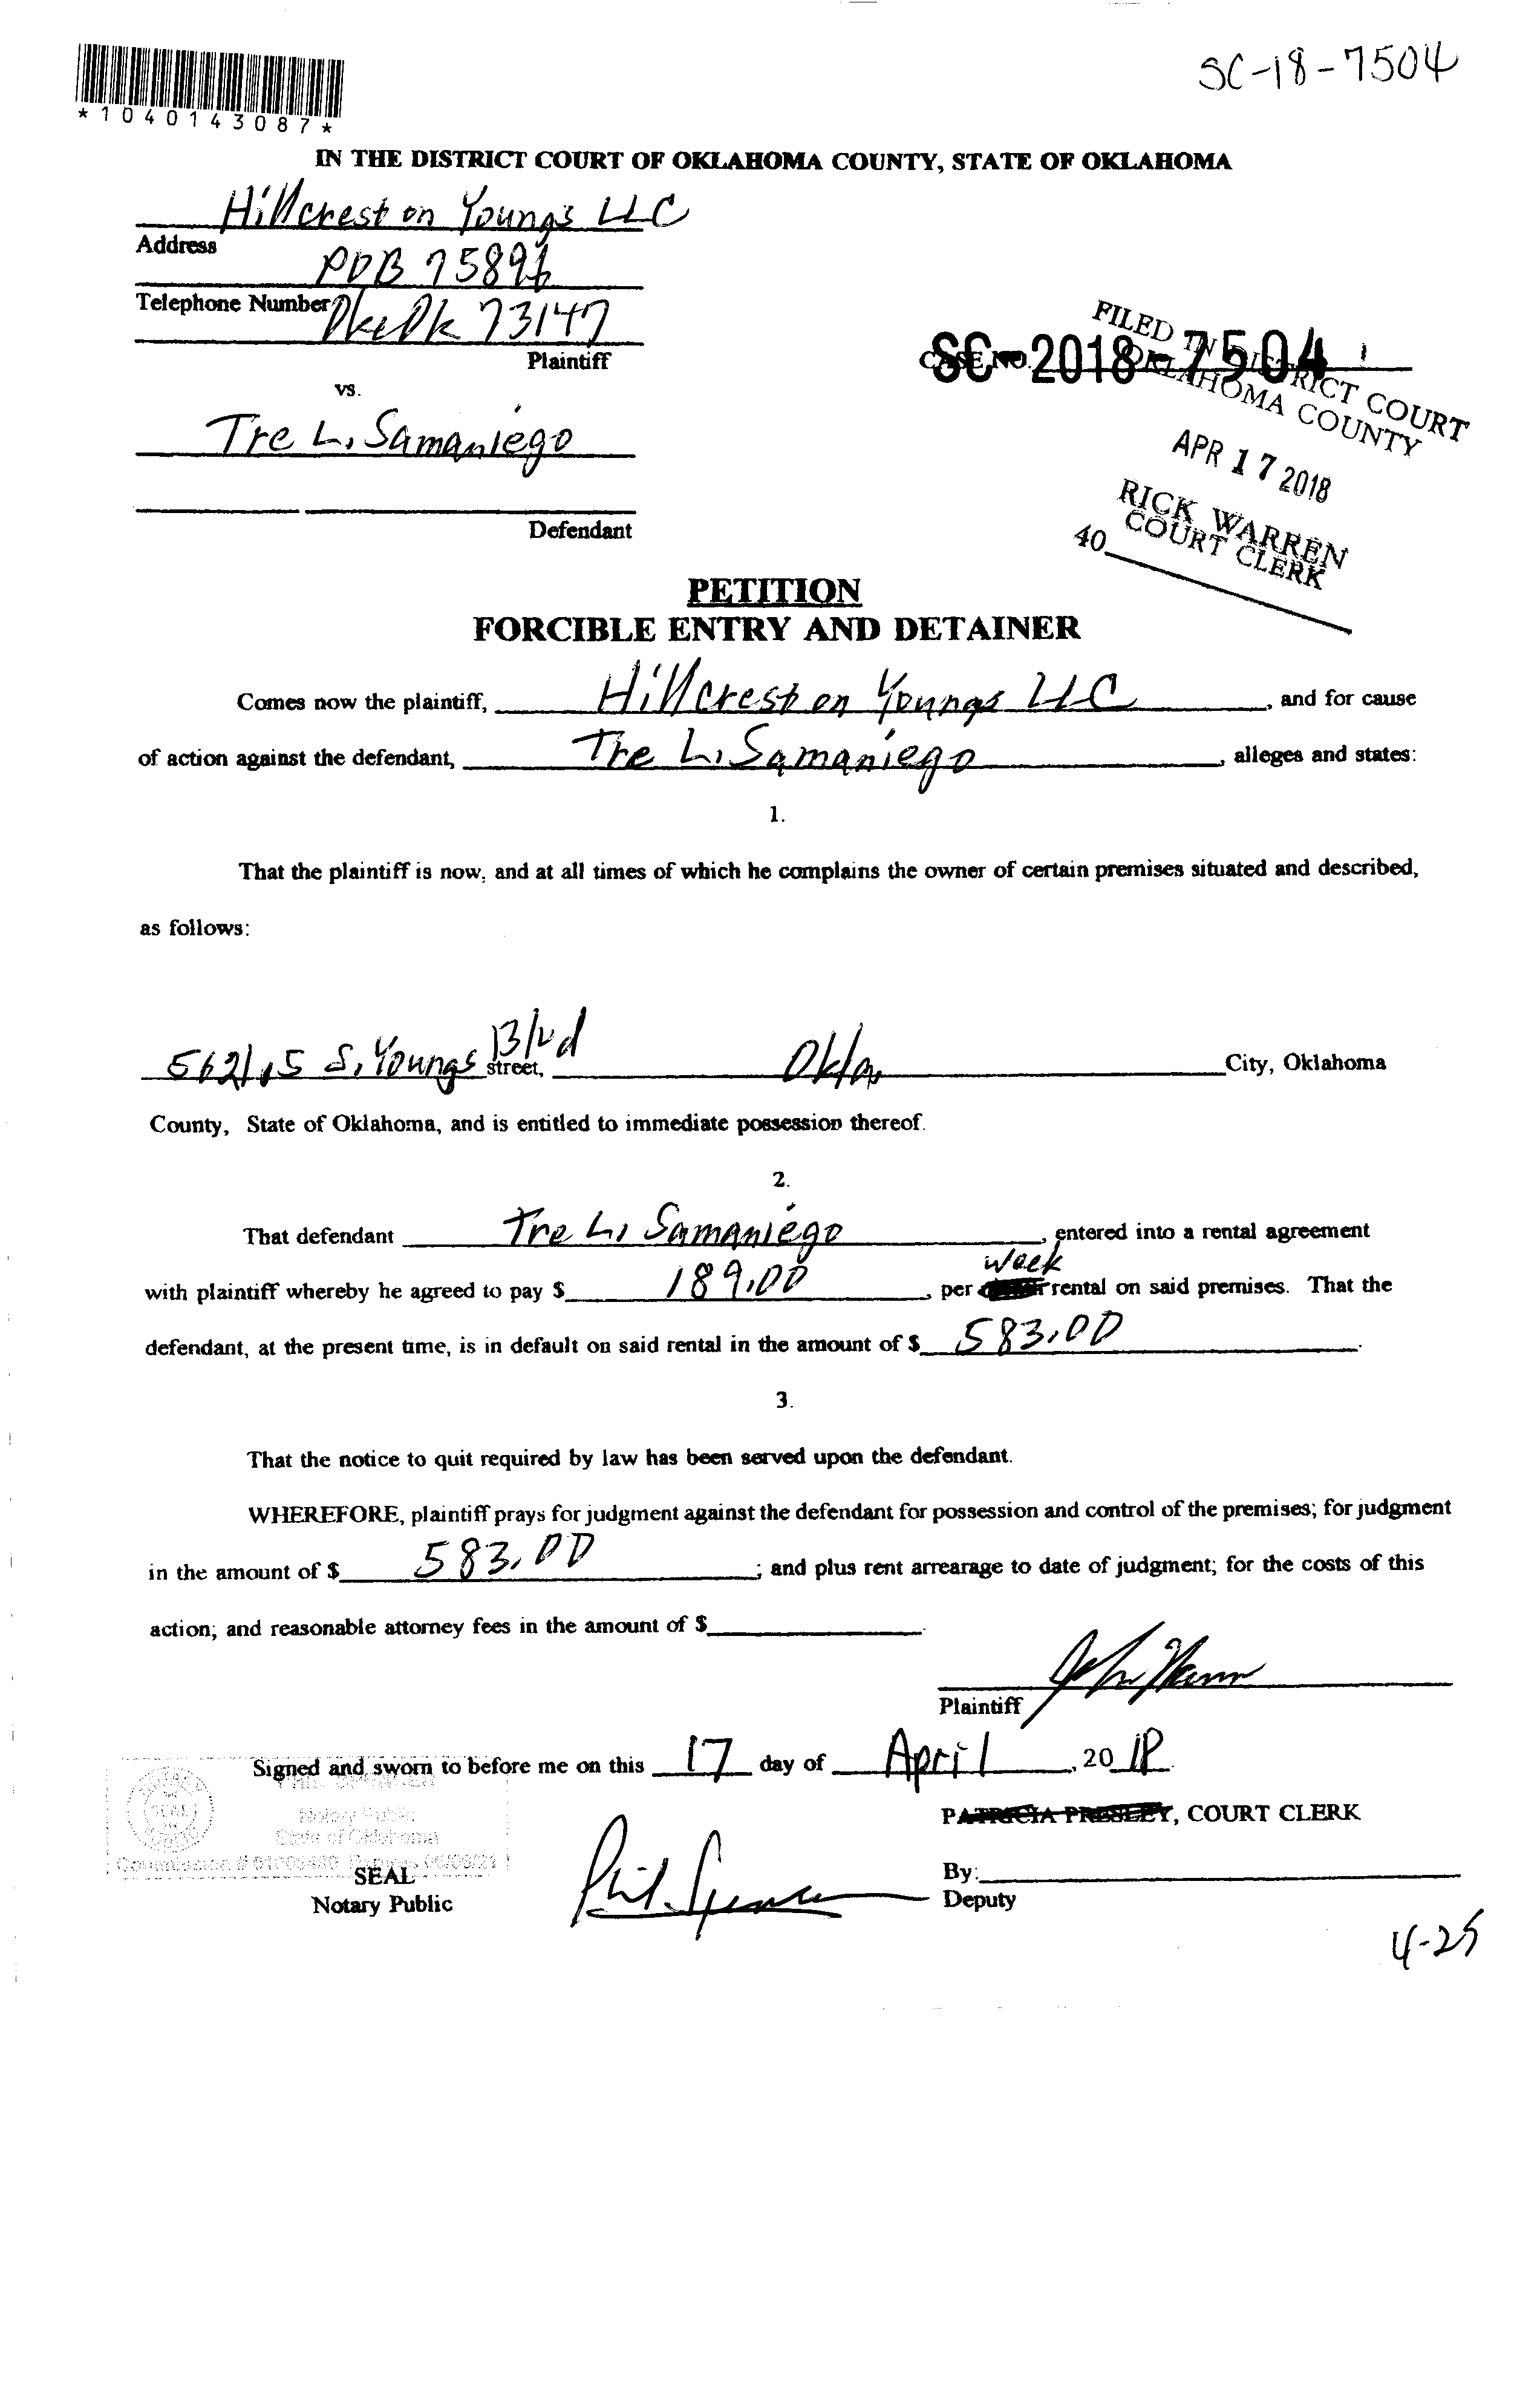 SC-18-7504
*1040143087*
IN THE DISTRICT COURT OF OKLAHOMA COUNTY, STATE OF OKLAHOMA
Hillcrest on Youngs LLC
Address
POB 75896
Telephone Number
73147
Plaintiff
vs.
SC-2018-7504
CASE NO.
FILED IN DISTRICT COURT
OKLAHOMA COUNTY
APR 17 2018
RICK WARREN
COURT CLERK
40
Tre L. Samaniego
Defendant
PETITION
FORCIBLE ENTRY AND DETAINER
Comes now the plaintiff, Hillcrest on Youngs LLC, and for cause
of action against the defendant, Tre L. Samaniego, alleges and states:
1.
That the plaintiff is now, and at all times of which he complains the owner of certain premises situated and described,
as follows:
S. Youngs Blvd street, Okla City, Oklahoma
County, State of Oklahoma, and is entitled to immediate possession thereof.
2.
That defendant Tre L. Samaniego, entered into a rental agreement
with plaintiff whereby he agreed to pay $ 189.00, per week rental on said premises. That the
defendant, at the present time, is in default on said rental in the amount of $ 583.00.
3.
That the notice to quit required by law has been served upon the defendant.
WHEREFORE, plaintiff prays for judgment against the defendant for possession and control of the premises; for judgment
in the amount of $ 583.00; and plus rent arrearage to date of judgment; for the costs of this
action; and reasonable attorney fees in the amount of $.
Plaintiff
Signed and sworn to before me on this 17 day of April, 2018.
Notary Public
State of Oklahoma
PATRICIA PRESLEY, COURT CLERK
SEAL
Notary Public
Phil Spencer
By:
Deputy
4-25